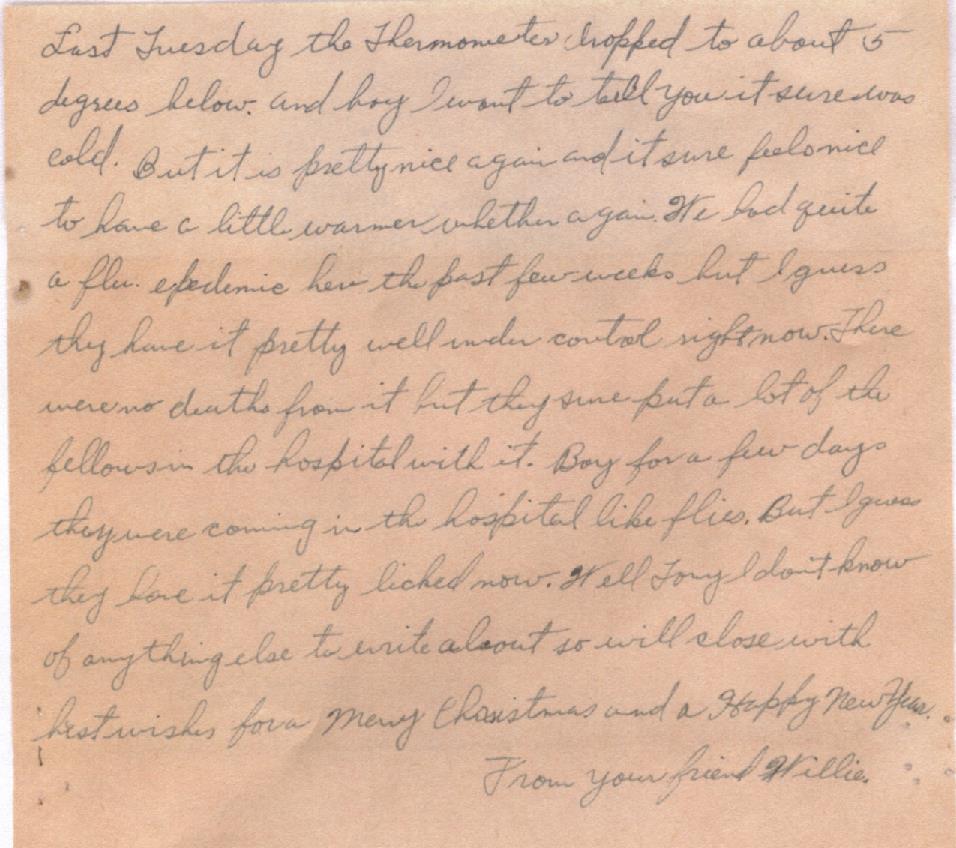 Last Tuesday the Thermometer dropped to about 5
degrees below. and boy I want to tell you it sure was
cold. But it is pretty nice again and it sure feels nice
to have a little warmer whether again. We had quite
a flu. epedemic here the past few weeks but I guess
they have it pretty well under control right now. There
were no deaths from it but they sure put a lot of the
fellows in the hospital with it. Boy for a few days
they were coming in the hospital like flies. But I guess
they have it pretty licked now. Well Tony I don't know
of anything else to write about so will close with
best wishes for a Merry Christmas and a Happy New Year.
From your friend Willie.